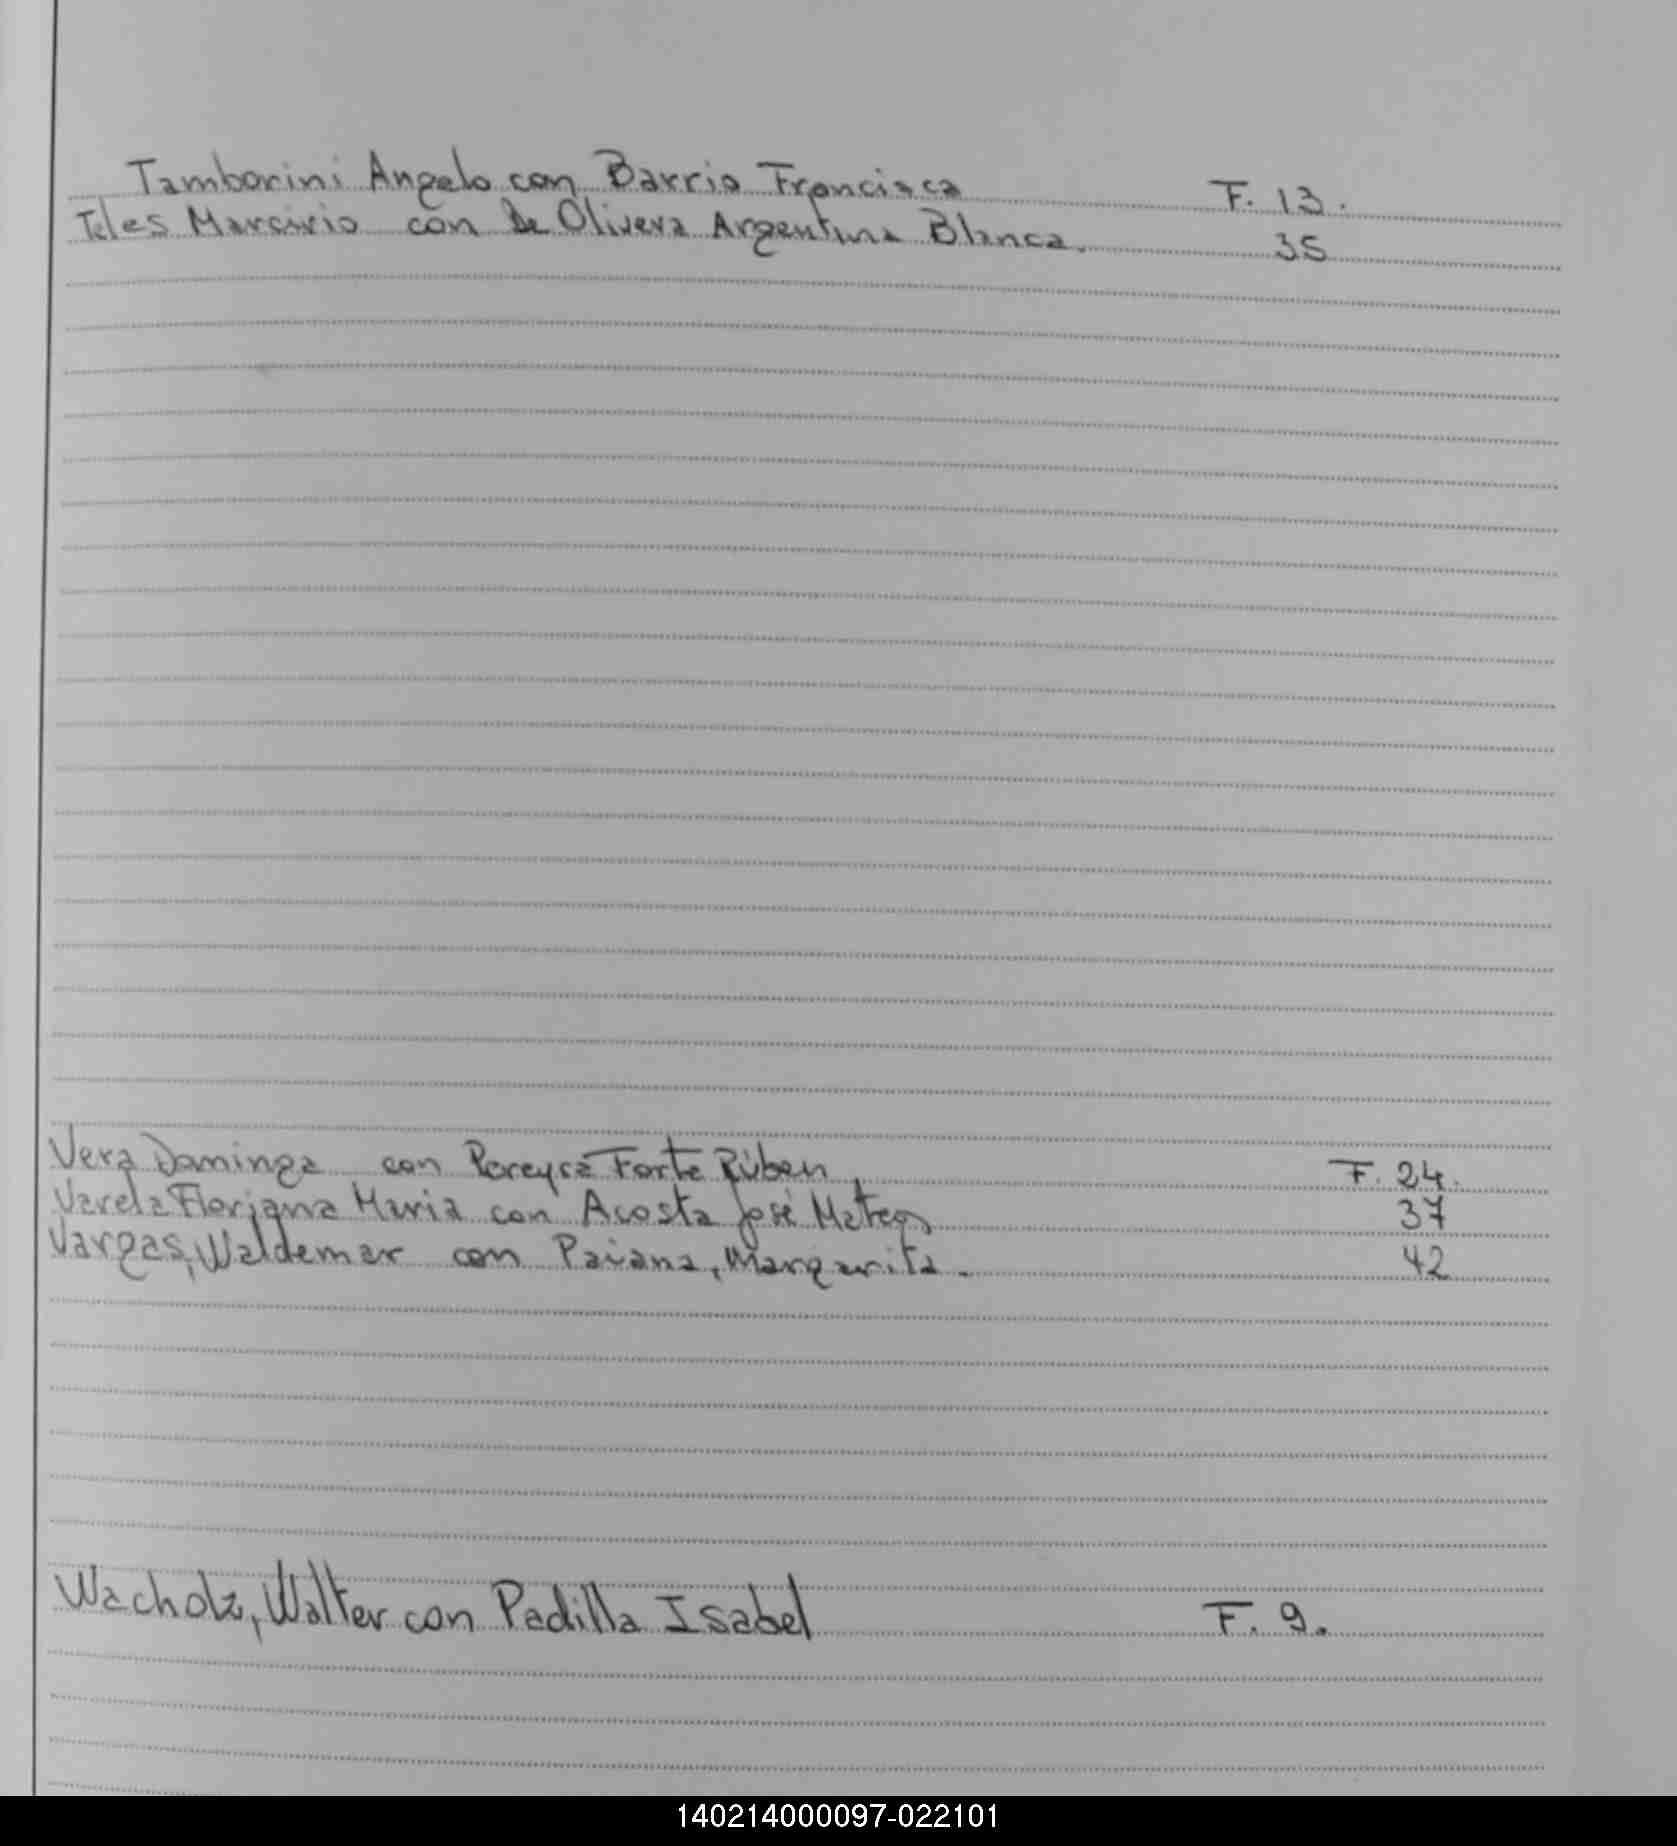 Tamborini Angelo con Barrio Francisca F. 13.
Teles Marcirio con de Olivera Argentina Blanca. 35
Vera Dominga con Pereyra Forte Rúben F. 24.
Varela Floriana Maria con Acosta José Mateo 37
Vargas, Waldemar con Paiana, Margarita. 42
Wacholz, Walter con Padilla Isabel F. 9.
140214000097-022101